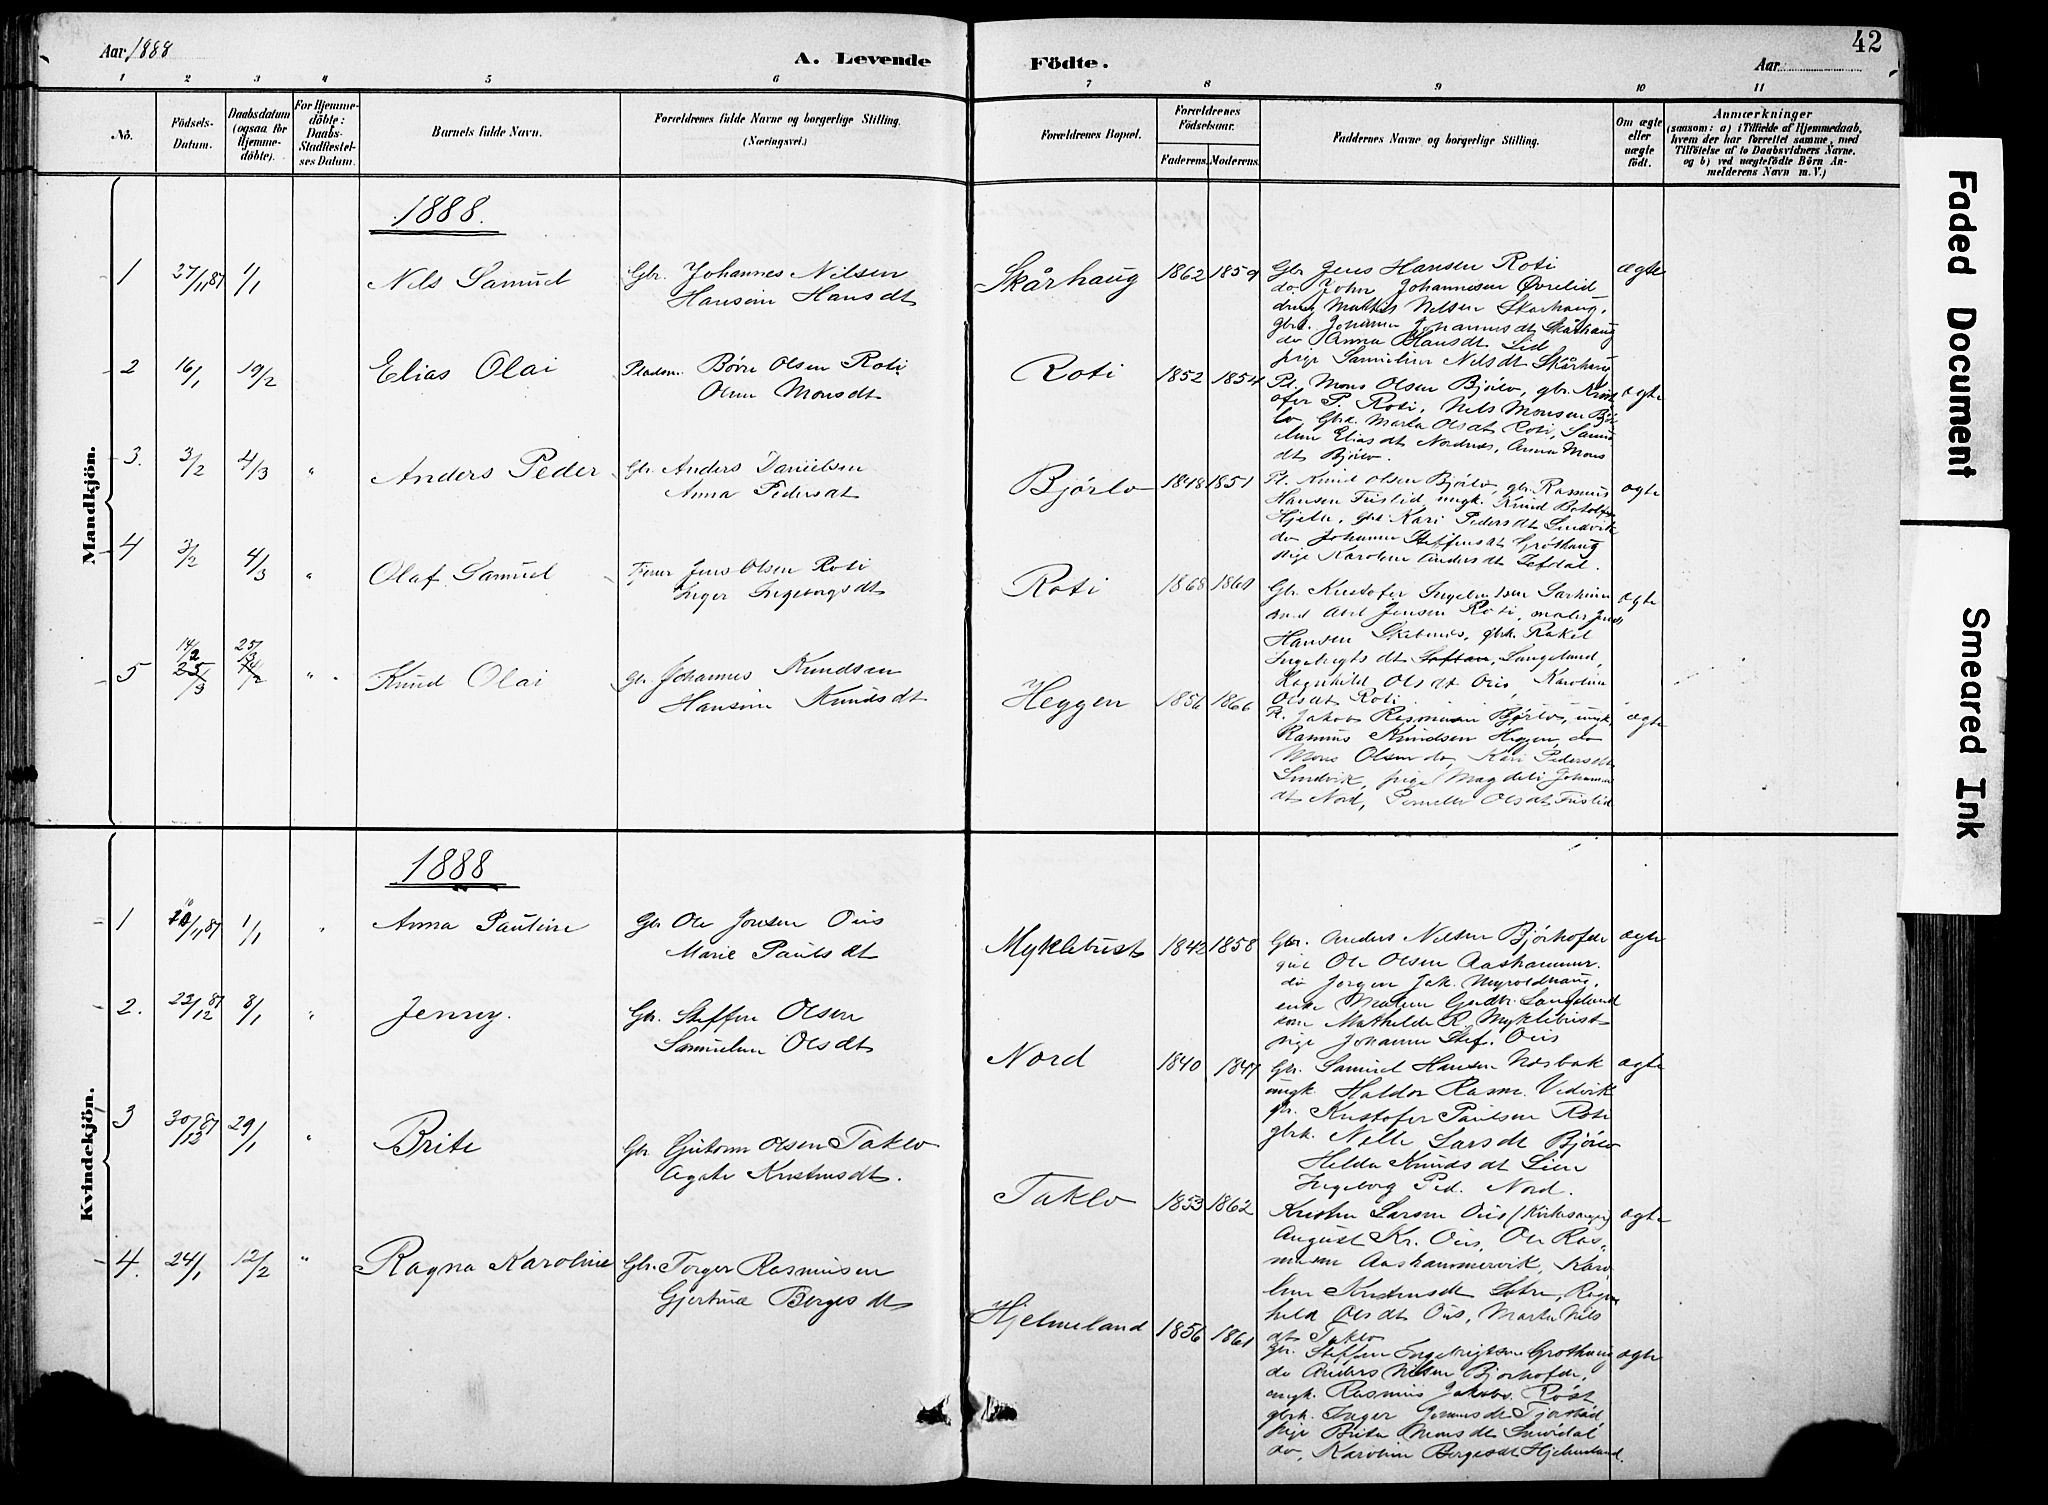 Aar 1888
A. Levende Födte.
Aar
42
1 2 3 4 5 6 7 8 9 10 11
No.
Födsels-Datum.
Daabsdatum (ogsaa for Hjemme-döbte).
For Hjemme-döbte: Daabs-Stadfæstel-ses Datum.
Barnets fulde Navn.
Forældrenes fulde Navne og borgerlige Stilling.
(Næringsvei.)
Forældrenes Bopæl.
Forældrenes Födselsaar.
Faderens. Moderens.
Faddernes Navne og borgerlige Stilling.
Om ægte eller uægte födt.
Anmærkninger
(saasom: a) i Tilfælde af Hjemmedaab,
hvem der har forrettet samme, med
Tilföielse af to Daabsvidners Navne.
og b) ved uægtefödte Börn An-
melderens Navn m. V.)
Mandkjön.
1888.
1 27/11 87 1/1 Nels Samuel Gbr. Johannes Nilsen
Hansine Hansdt
Skårhaug 1862 1859
Gbr Jens Hansen Roti
do John Johannesen Øvrelid
Nilsen Skarhaug,
gbrk. Johanne Johannesdt Skårhaug
do Anna Hansdt Lid
pige Samueline Nilsdt Skårhaug
ægte
2 16/1 19/2 Elias Olai Pladsm. Børre Olsen Roti
Monsdt
Roti 1852 1854
Pl. Mons Olsen Bjørlo, gbr.
P. Roti, Nels Monsen
Gbrk. Marta Olsdt Roti,
Eliasdt Nordnes, Anna Mons
dt Bjørlo.
ægte
3. 3/2 4/3 " Anders Peder Gbr. Anders Danielsen
Anna Pedersdt
Bjørlo 1848 1851
Pl. Knud Olsen Bjørlo, gbr. Rasmus
Hansen Fristid ungk. Knud
Hjelle, gbk Kari Pedersdt Sindvik
do Johanne Steffensdt Grothaug
pige Karoline Andersdt
ægte
4 3/2 4/3 " Olaf Samuel Jens Olsen Roti
Inger Ingeborgsdt
Roti 1868
Gbr. Kristofer
Jensen Roti, maler Jens
Hansen gbrk. Rakel
Ingebrigtsdt Langeland,
Ragnhild Olsdt Ous, Karolina
Olsdt Roti
ægte
5 14/2 25/3 25/3 14/2 " Knud Olai gbr. Johannes Knudsen
Hansine Knudsdt
Heggen 1856 1866
Pl. Jakob Rasmusen Bjørlo, ungk.
Rasmus Knudsen Heggen, do
Mons Olsen do, Kari Pedersdt
Sindvik, pige Magdeli Johannes
dt Nord, Pernille Olsdt Fristid
ægte
Kvindekjön.
1888
1 /11 87 1/1 " Anna Pauline Gbr Ole Jonsen Ous
Marie Paulsdt
Myklebust 1842 1858
Gbr. Anders Nilsen Bjørhofde
Ole Olsen Aashammer.
do Jørgen Jak. Myroldhaug,
enke Langeland
kone Mathilde R. Myklebust
pige Johanne Stef. Ous
ægte
2. 23/12 87 8/1 " Jenny. Gbr. Steffen Olsen
Samueline Olsdt
Nord 1840 1847
Gbr. Samuel Hansen Nosbak
ungk. Haldor Rasm. Vidvik
gbr. Kristofer Paulsen Roti
gbrk. Nelle Larsdt Bjørlo
Helda Knudsdt Lien
Ingeborg Ped. Nord.
ægte
3 30/12 87 29/1 " Brite Gbr Guttorm Olsen Taklo
Agate Kristensdt.
Taklo 1853 1862
Kristen Larsen Ous (Kirkesanger)
August Kr. Ous, Ole Ras-
musen Aashammervik, Karo-
line Kristensdt Ragn
hild Olsdt Ous, Marta Nils
dt Taklo
ægte
4. 24/1 12/2 " Ragna Karoline Gbr. Torger Rasmusen
Gjertrud Bergesdt
Hjelmeland 1856 1861
gbr. Steffen Ingebrigtsen Grothaug
do Anders Nilsen Bjorhofde,
ungk. Rasmus Jakobs. Røst
gbrk. Inger
pige Brita Monsdt
do, Karoline Bergesdt Hjelmeland.
ægte
Faded Document
Smeared Ink